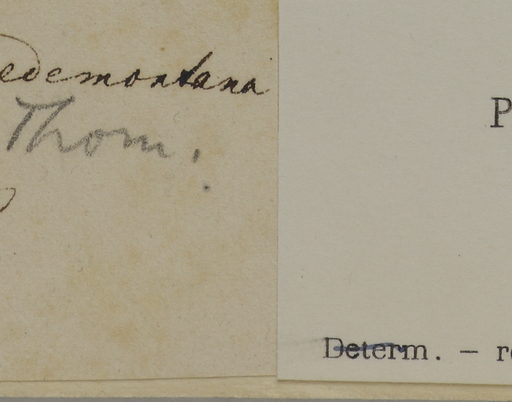 edemontana
Thom.
P
Determ. — re